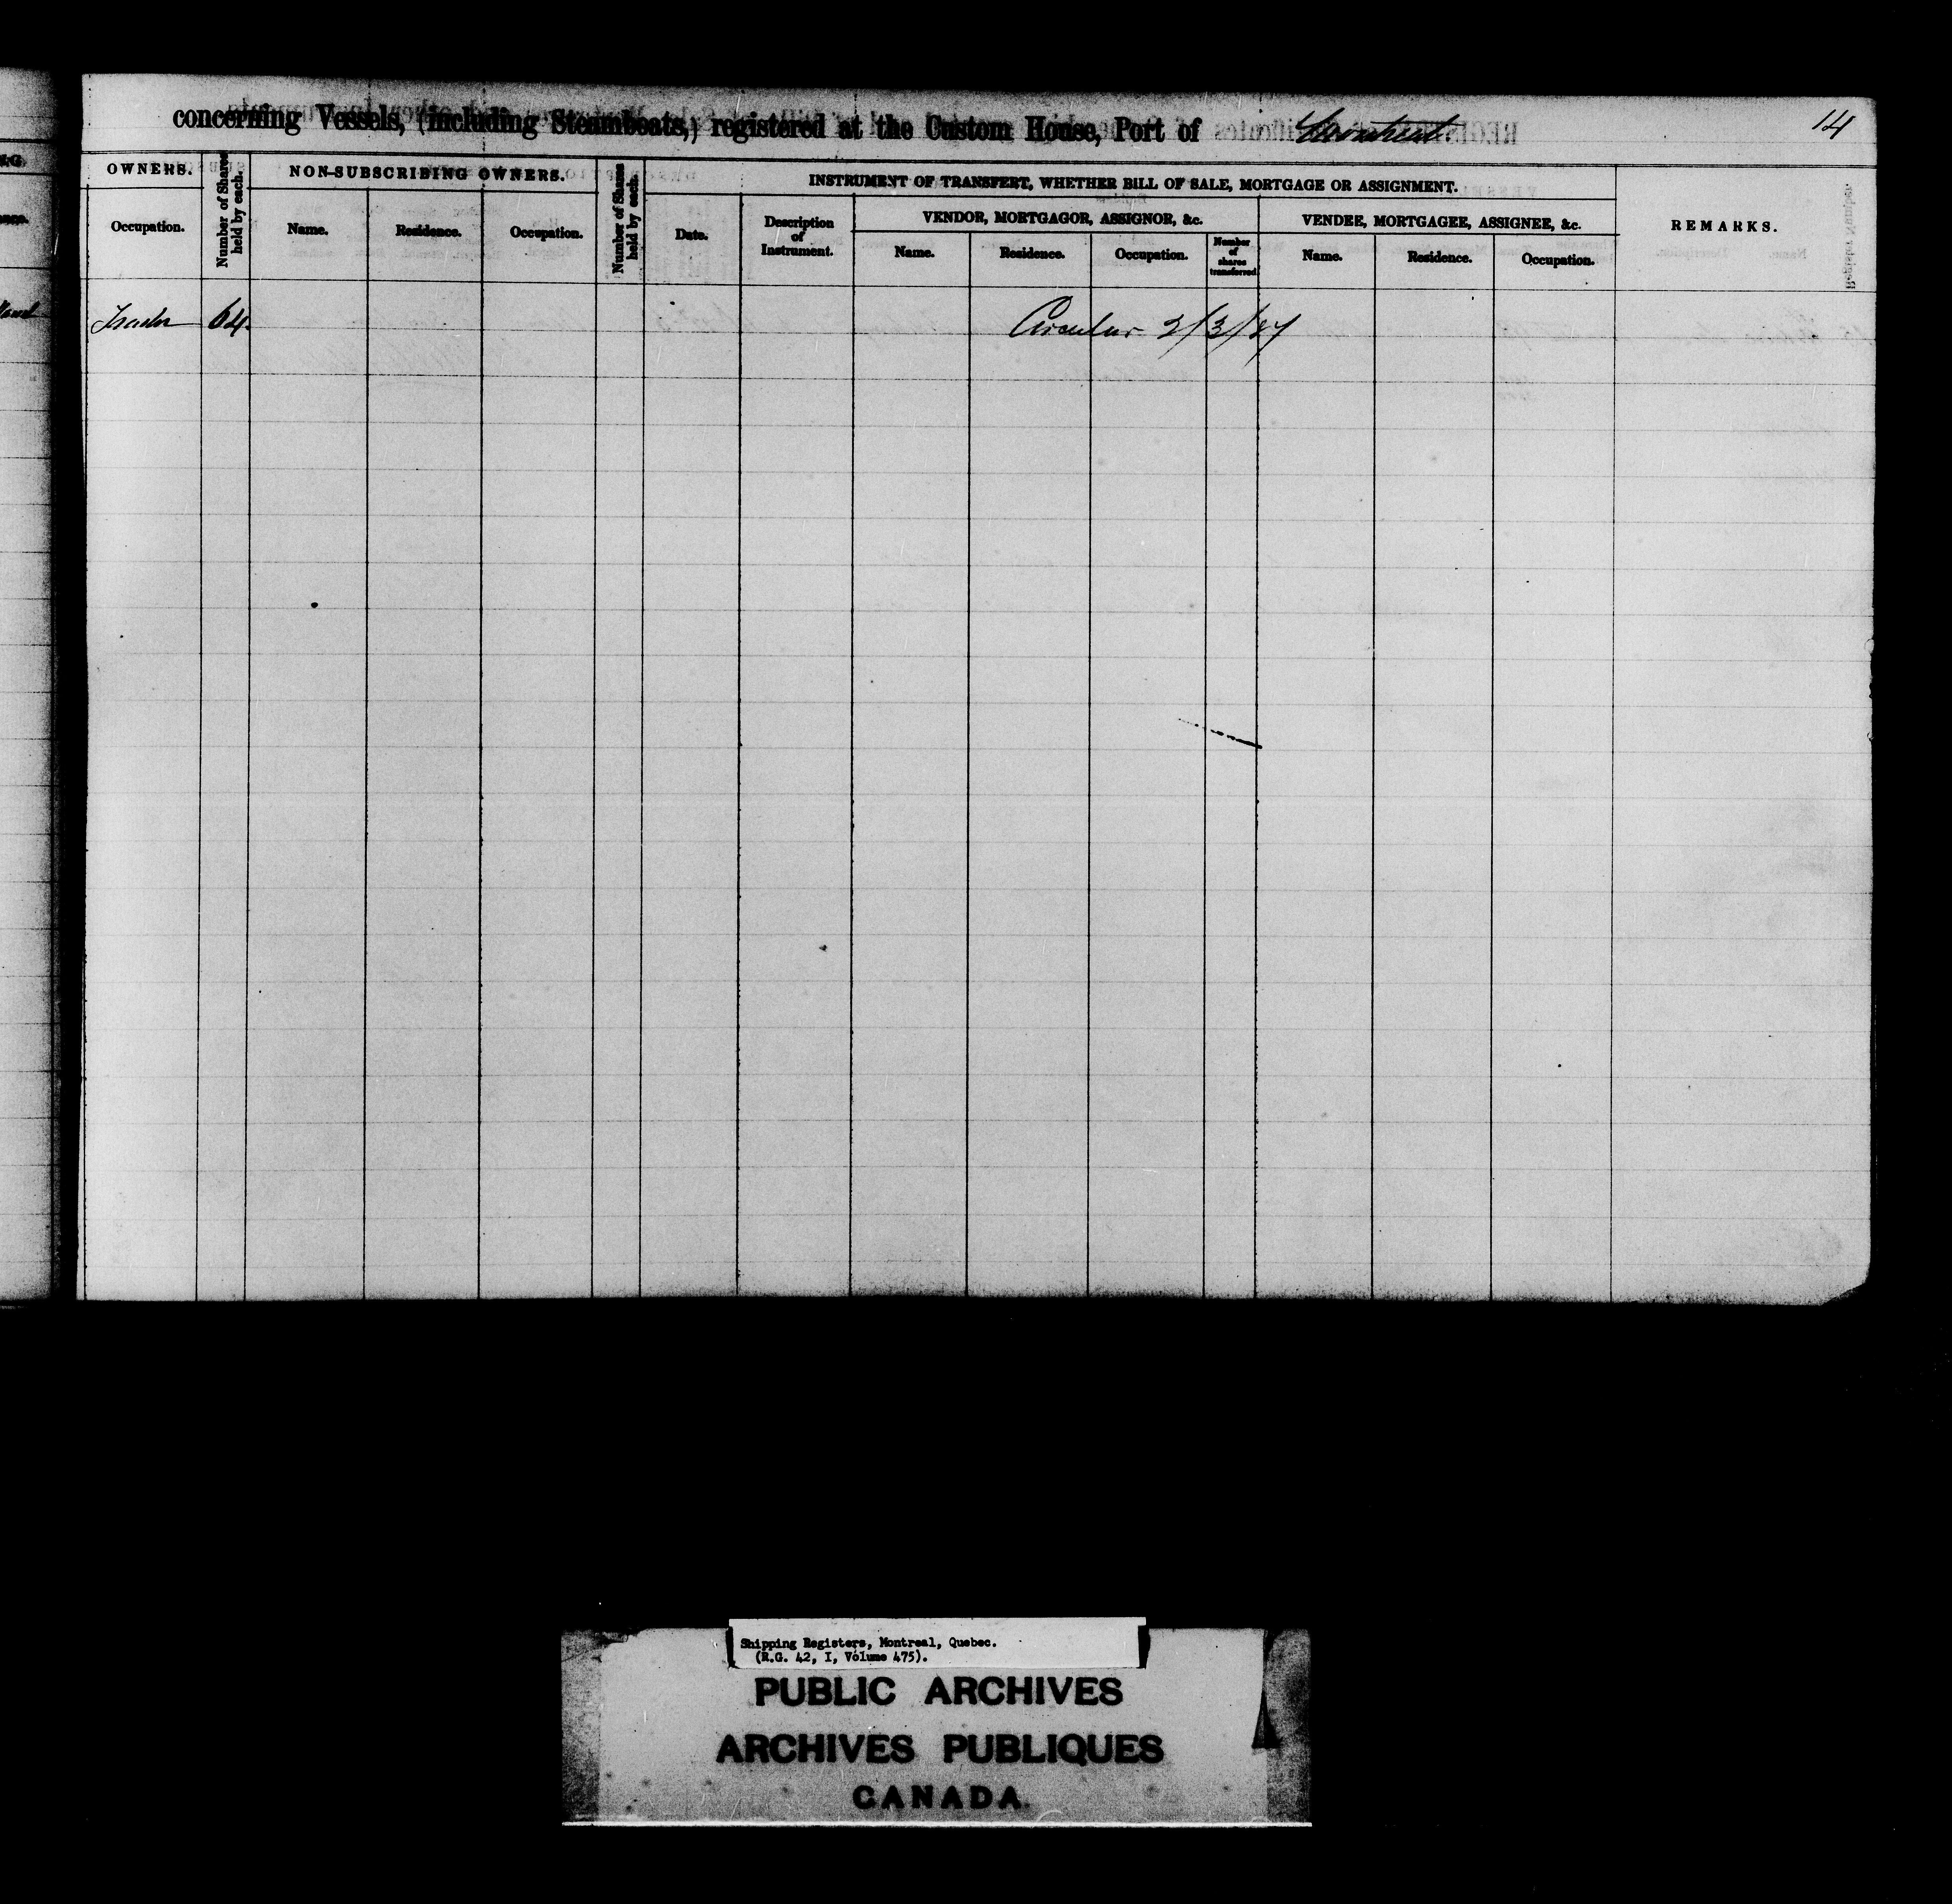 concerning Vessels, (including Steamboats,) registered at the Custom House, Port of Montreal.
14
OWNERS.
Number of Shares held by each.
NON-SUBSCRIBING OWNERS.
Number of Shares held by each.
INSTRUMENT OF TRANSFERT, WHETHER BILL OF SALE, MORTGAGE OR ASSIGNMENT.
REMARKS.
Occupation.
Name.
Residence.
Occupation.
Date.
Description of Instrument.
VENDOR, MORTGAGOR, ASSIGNOR, &c.
VENDEE, MORTGAGEE, ASSIGNEE, &c.
Name.
Residence.
Occupation.
Number of shares transferred
Name.
Residence.
Occupation.
Trader 64. Circular 2/3/27
Shipping Registers, Montreal, Quebec.
(R.G. 42, I, Volume 475).
PUBLIC ARCHIVES
ARCHIVES PUBLIQUES
CANADA.